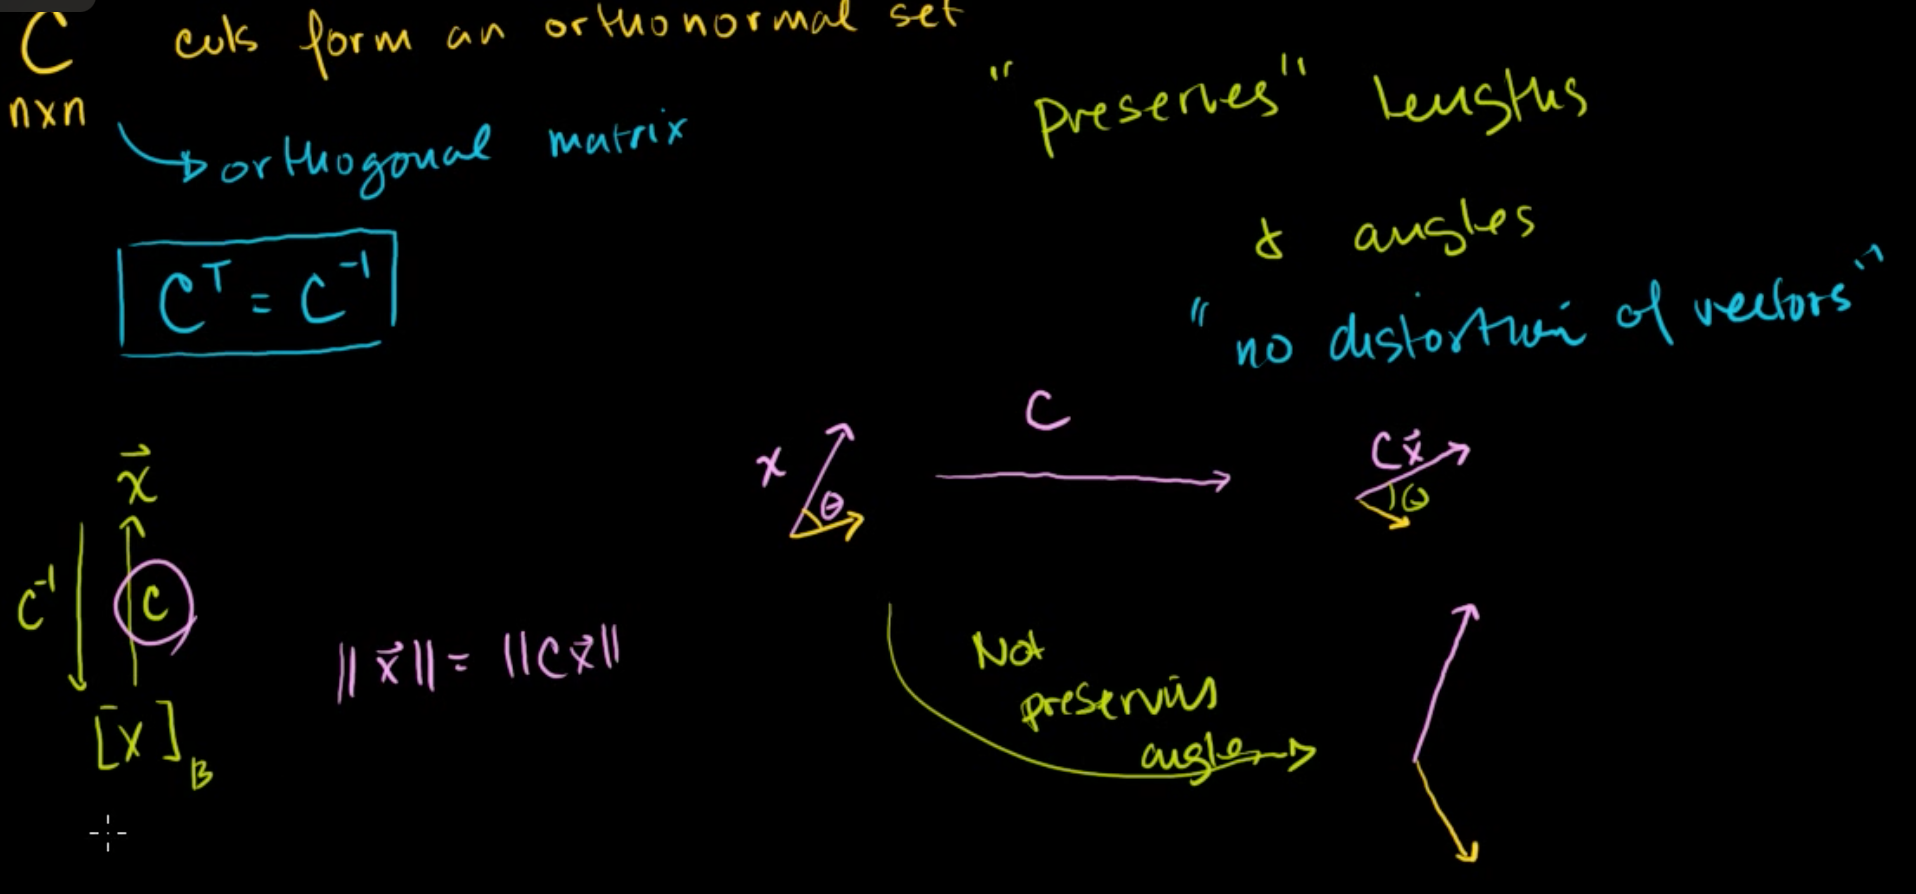 C cols form an orthonormal set
nxn
orthogonal matrix
Cᵀ = C⁻¹
"preserves" lengths
& angles
"no distortion of vectors"
x⃗
C⁻¹
C
[x]_B
||x⃗|| = ||Cx⃗||
x
θ
C
Cx⃗
θ
Not
preserving
angles